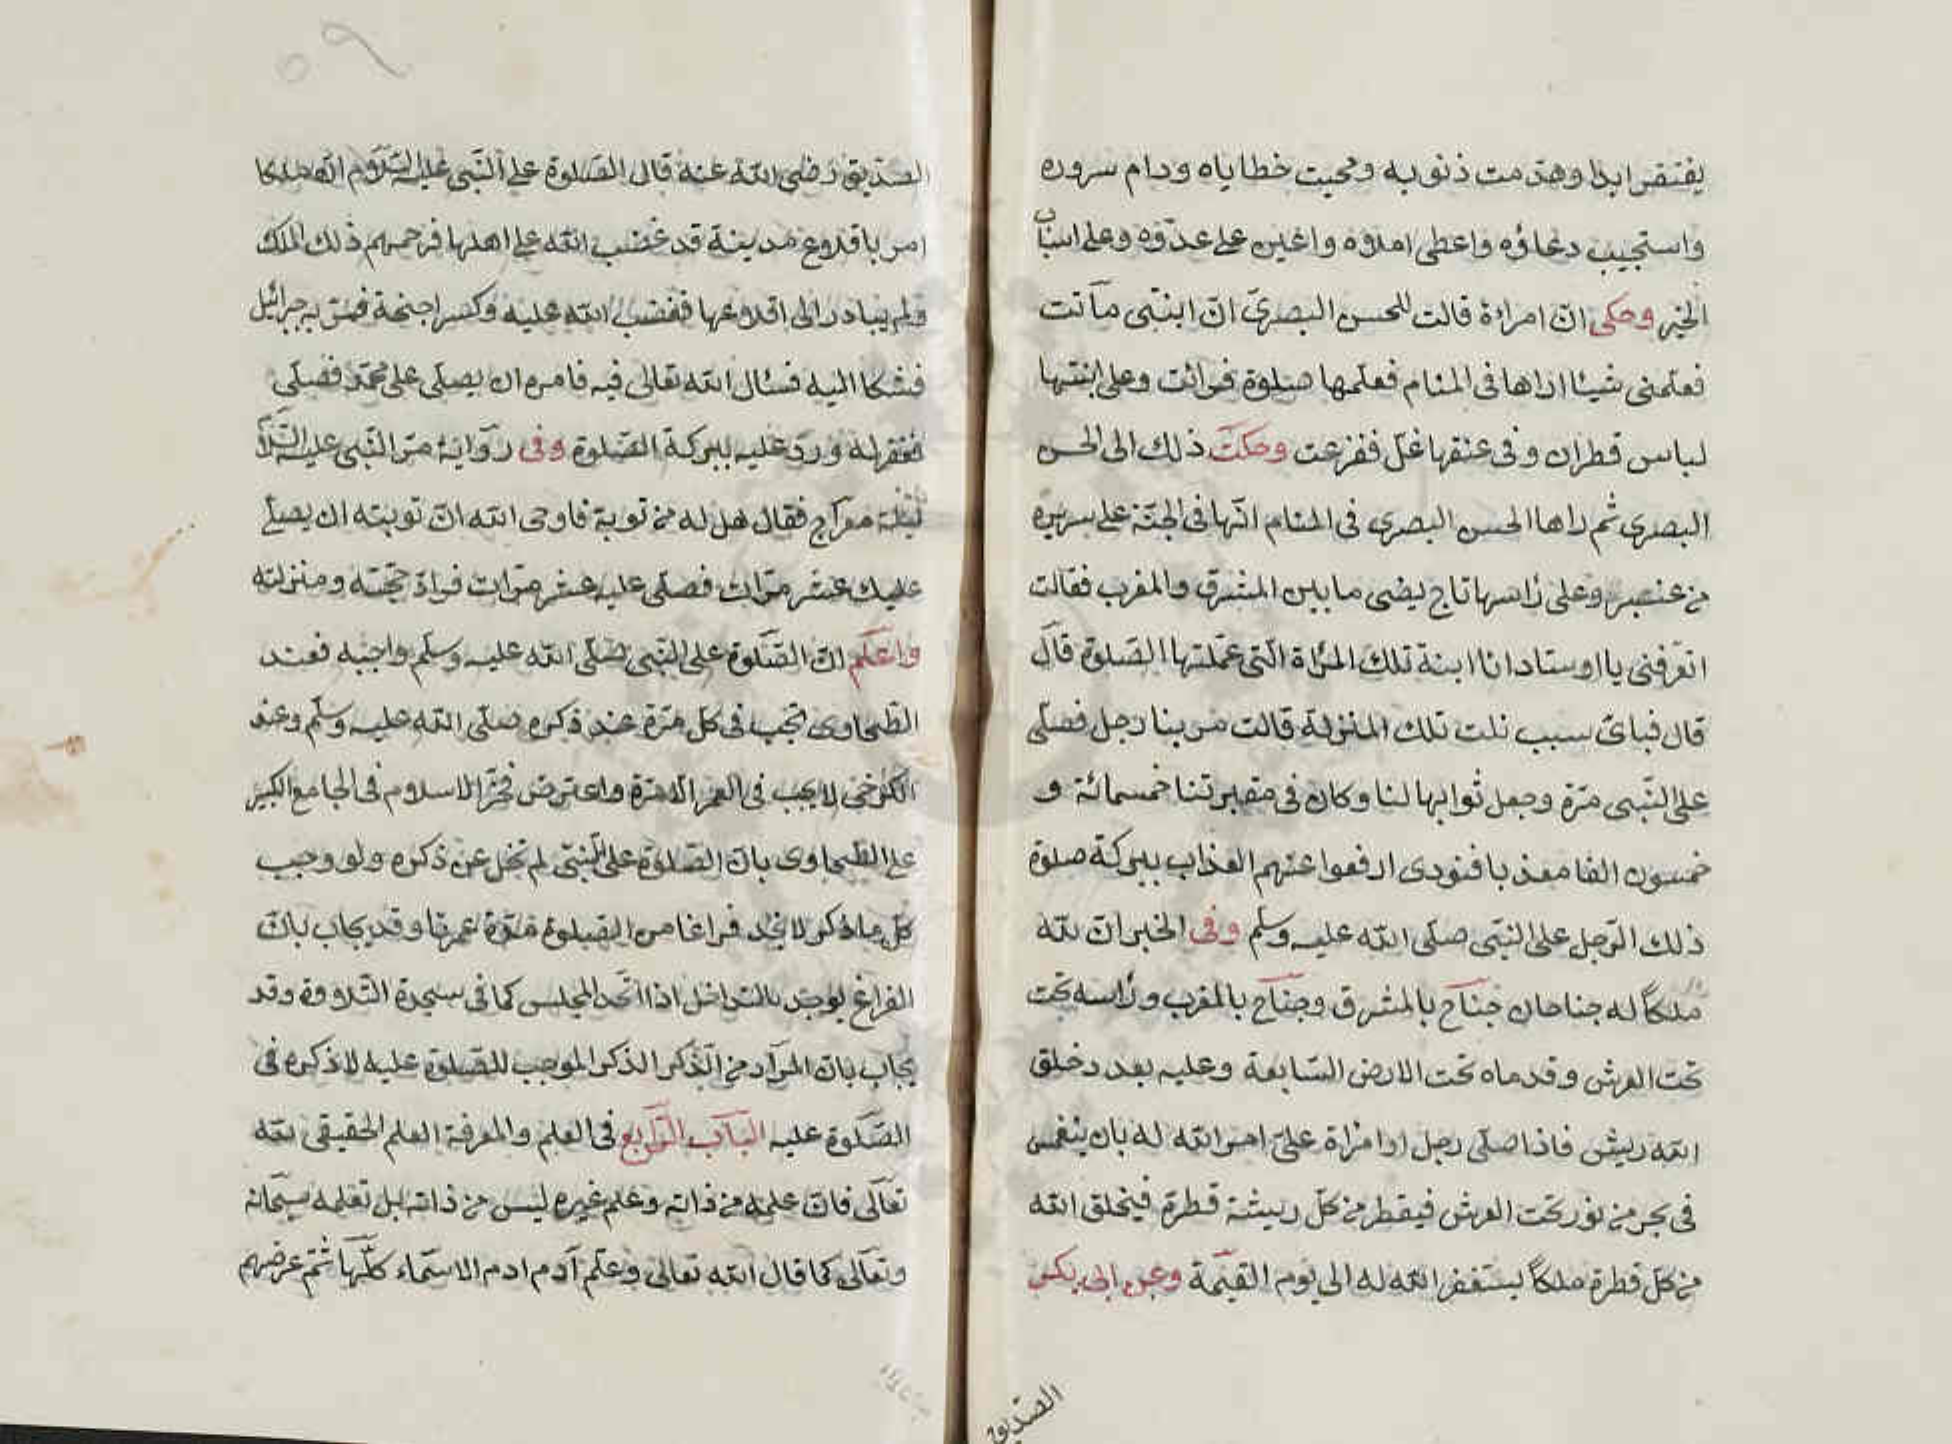 يفتقر ابدا وهدّمت ذنوبه ومحيت خطاياه ودام سروره
واستجيب دعاؤه واعطى املاوه واغين على عدّوه وعلى اسباب
الخير وحكى انّ امراة قالت للحسن البصرىّ انّ ابنتى ماتت
فعلّمنى شيئا اراها فى المنام فعلّمها صلوة فرائت وعلى ابنتها
لباس قطران وفى عنقها غلّ ففزعت وحكت ذلك الى الحسن
البصرى ثم راها الحسن البصرى فى المنام انّها فى الجنّة على سريره
من عنبر وعلى رأسها تاج يضى ما بين المشرق والمغرب فقالت
اتعرفنى يا اوستاد انا ابنة تلك المرأة الّتى عملتها الصّلوة قال
قال فباىّ سبب نلت تلك المنزلة قالت مر بنا رجل فصلّى
على النّبى مرّة وجعل ثوابها لنا وكان فى مقبرتنا خمسمائة و
خمسون الفا معذبا فنودى ارفعوا عنهم العذاب ببركة صلوة
ذلك الرّجل على النّبى صلّى الله عليه وسلّم وفى الخبر انّ لله
ملكاً له جناحان جناح بالمشرق وجناح بالمغرب ورأسه تحت
تحت العرش وقدماه تحت الارض السّابعة وعليه بعدد خلق
الله ريش فاذا صلّى رجل او امراة علىّ امر الله له بان ينغمس
فى بحر من نور تحت العرش فيقطر من كلّ ريشة قطرة فيخلق الله
من كلّ قطرة ملكاً يستغفر الله له الى يوم القيمة وعن ابى بكر
الصّديق
الصّديق رضى الله عنه قال الصّلوة على النّبى عليه السّلام انّ ملكا
امر باقلاع مدينة قد غضب الله على اهلها فرحمهم ذلك الملك
ولم يبادر الى اقلاعها فغضب الله عليه وكسر اجنحة فمرّ به جبرائيل
فشكا اليه فسئال الله تعالى فيه فامره ان يصلّى على محمّد فصلّى
فغفر له وردّ عليه ببركة الصّلوة وفى رواية مرّ النّبى عليه السّلام
ليلة معراج فقال هل له من توبة فاوحى الله انّ توبته ان يصلّى
عليك عشر مرّات فصلّى عليه عشر مرّات فرادّ جنحته ومنزلته
واعلم انّ الصّلوة على النّبى صلّى الله عليه وسلّم واجبه فعند
الطّحاوى تجب فى كلّ مرّة عند ذكره صلّى الله عليه وسلّم وعند
الكرخى لا يجب فى العمر الّا مرّة واعترض فخر الاسلام فى الجامع الكبير
على الطّحاوى بانّ الصّلوة على النّبى لم تخل عن ذكره ولو وجب
كلّ ما ذكر لا يجد فراغا من الصّلوة مدّة عمرنا وقد يجاب بانّ
الفراغ يوجد بالتداخل اذا اتّحد المجلس كما فى سجدة التّلاوة وقد
يجاب بانّ المراد من الذّكر الذكر الموجب للصّلوة عليه لا ذكره فى
الصّلوة عليه الباب الرّابع فى العلم والمعرفة العلم الحقيقى لله
تعالى فانّ علمه من ذاته وعلم غيره ليس من ذاته بل تعلمه سبحانه
وتعالى كما قال الله تعالى وعلّم آدم ادم الاسماء كلّها ثمّ عرضهم